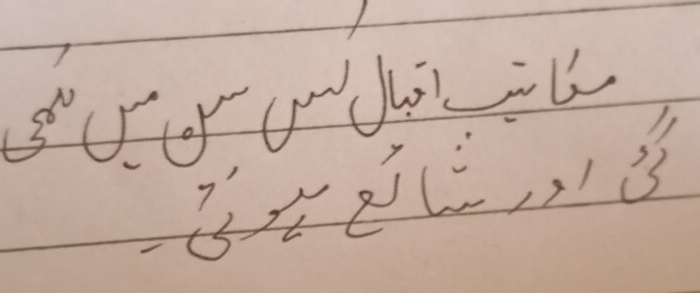 مکاتیب اقبال کس سن میں لکھی
گئی اور شائع ہوئی۔